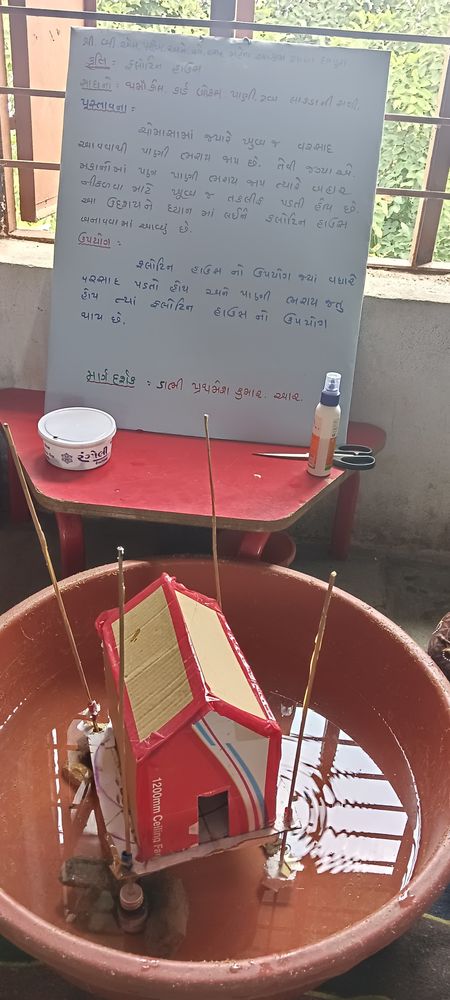 કૃતિ : ફલોટિન હાઉસ
સાધનો : થર્મોકોલ, કાર્ડ બોકસ, પાણી,
પ્રસ્તાવના :
ચોમાસામાં જ્યારે ખુબ જ વરસાદ
આવવાથી પાણી ભરાય જાય છે. તેવી જગ્યાએ
મકાનોમાં પણ પાણી ભરાય જાય ત્યારે બહાર
નીકળવા માટે ખુબ જ તકલીફ પડતી હોય છે.
આ ઉદ્દેશ્યને ધ્યાન માં લઈને ફલોટિન હાઉસ
બનાવવામાં આવ્યું છે.
ઉપયોગ :
ફલોટિન હાઉસ નો ઉપયોગ જ્યાં વધારે
વરસાદ પડતો હોય અને પાણી ભરાય જતુ
હોય ત્યાં ફલોટિન હાઉસ નો ઉપયોગ
થાય છે.
માર્ગ દર્શક : ડાભી પ્રથમેશ કુમાર. આર.
રંગોલી
1200mm Ceiling Fa